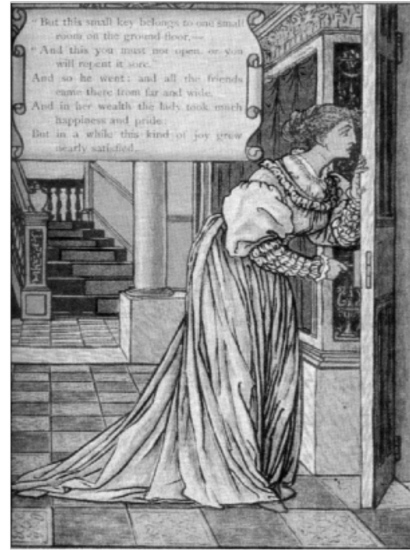 " But this small key belongs to one small
room on the ground floor,—
" And this you must not open, or you
will repent it sore.
And so he went ; and all the friends
came there from far and wide,
And in her wealth the lady took much
happiness and pride:
But in a while this kind of joy grew
nearly satisfied,